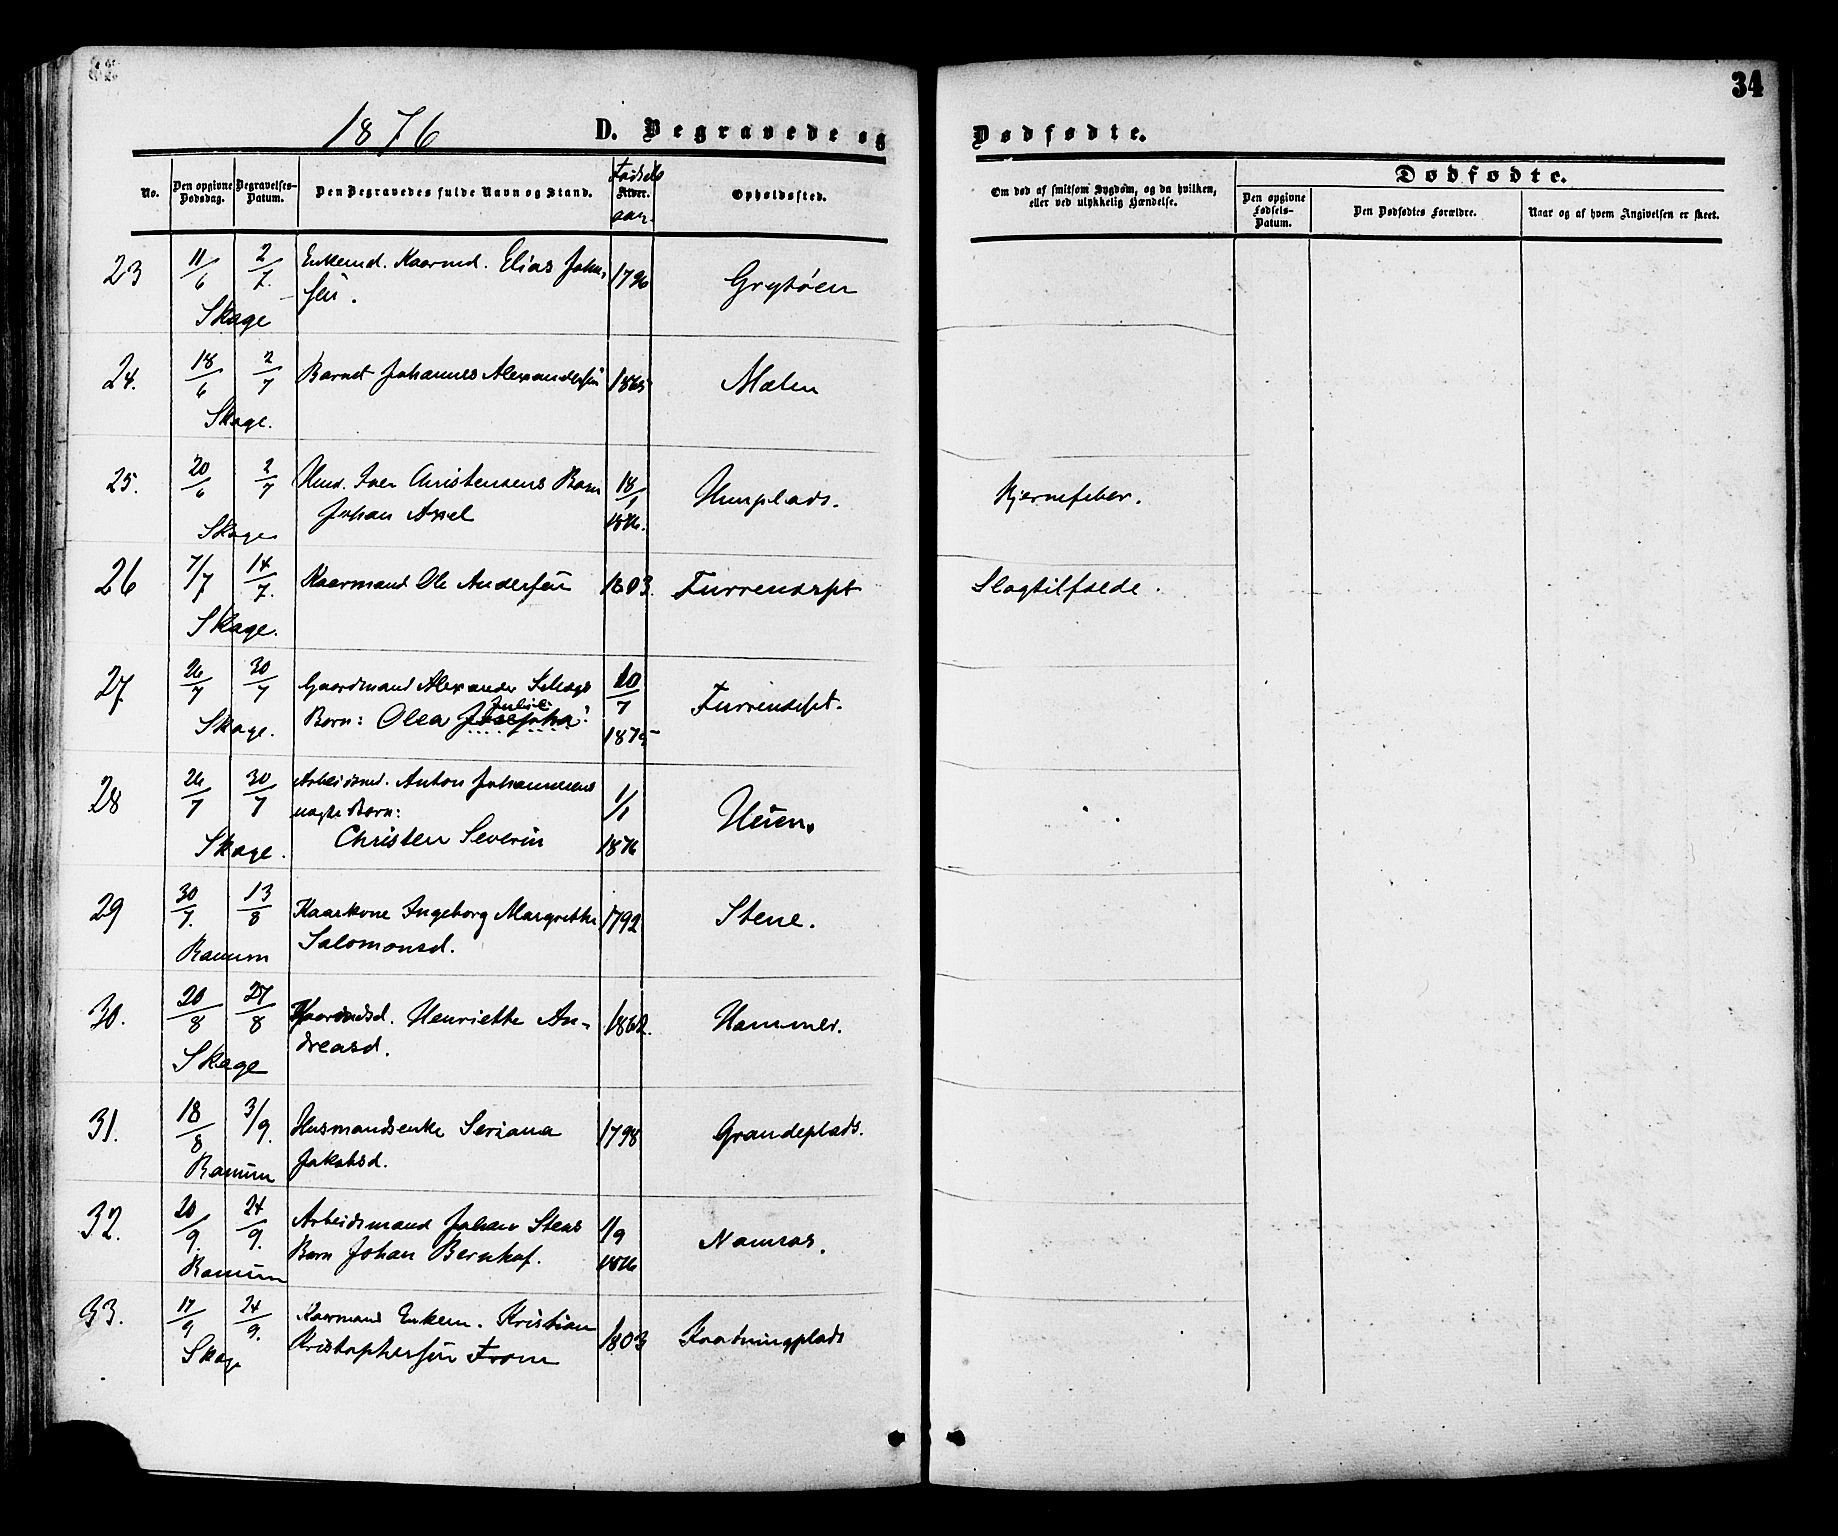 34
1876 D. Begravede og Dødfødte.
No. Den opgivne Dødsdag. Begravelses-Datum. Den Begravedes fulde Navn og Stand. Fødsels Alder. aar. Opholdssted.
Om død af smitsom Sygdom, og da hvilken, eller ved ulykkelig Hændelse.
Dødfødte.
Den opgivne Fødsels-Datum. Den Dødfødtes Forældre. Naar og af hvem Angivelsen er skeet.
23 11/6 2/7. Enkemd. Kaarmd. Elias Johan- 1796 Grytøen
sen.
Skage
24. 18/6 2/7 Barnet Johannes Alexandersen 1865 Mælen
Skage.
25. 20/6 2/7 Husd. Iver Christensens Barn 18/1 1876. Humplads. Hjernefeber.
Johan Axel
Skage
26 7/7 14/7. Kaarmand Ole Andersen 1803. Furrenørspt Slagtilfælde.
Skage.
27. 26/7 30/7 Gaardmand Alexander
Barn: Olea Josepha Julie 20/7 1875 Furrenørspt.
Skage.
28 26/7 30/7 Arbeidsmd. Anton Johannesens 1/1 1876
uægte Barn:
Christen Severin
Skage.
29 30/7. 13/8 Kaarkone Ingeborg Margrethe 1792 Stene.
Salomonsd.
Ranum
30. 20/8 27/8 Henriette An- 1862. Hammer.
dreasd.
Skage
31. 18/8 3/9. Husmandsenke Seriana 1798 Grandeplads.
Jakobsd.
Ranum
32. 20/9. 24/9. Arbeidsmand Johan Stens 1/9 1876 Namsos.
Barn Johan Bernhof.
Ranum
33. 17/9 24/9. Kaarmand Enkem. Kristian 1803
Kristophersen From
Skage